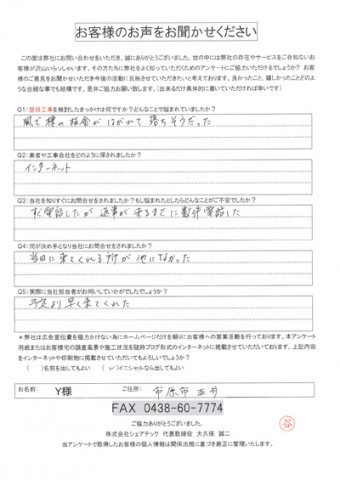 お客様のお声をお聞かせください
この度は弊社にお問い合わせをいただき、誠にありがとうございました。世の中には弊社の存在やサービスをご存知ないお
客様が沢山いらっしゃいます。その方たちに弊社をよく知っていただくためのアンケートにご協力いただけるでしょうか？ お客
様のご意見をお聞かせいただき今後の活動に反映させていただきたいと考えております。良かったこと、嬉しかったことどのよ
うな些細な事でも結構です。是非ご協力お願い致します。（出来るだけ具体的に書いていただければ幸いです）
Q1：屋根工事を検討したきっかけは何ですか？どんなことで悩まれていましたか？
風で棟の板金がはがれて落ちそうだった
Q2：業者や工事会社をどのように探されましたか？
インターネット
Q3：当社を知りすぐにお問合せをされましたか？もし悩まれたとしたらどんなことがご不安でしたか？
すぐ電話したが返事が来るまでに数件電話した
Q4：何が決め手となり当社にお問合せをされましたか？
当日に来てくれる所が他になかった
Q5：実際に当社担当者がお伺いしていかがでしたでしょうか？
予定より早く来てくれた
＊弊社は広告宣伝費を極力かけない為にホームページだけを頼りにお客様への営業活動を行っております。本アンケート
用紙またはお客様宅の調査風景や施工状況を随時ブログ形式のインターネットに掲載させていただいております。上記内容
をインターネットや印刷物に掲載させていただいてもよろしいでしょうか？
（　）名前を出してもよい　（レ）イニシャルなら出してもよい
お名前: Y様 ご住所: 市原市五井
FAX 0438-60-7774
ご協力ありがとうございました。
株式会社シェアテック 代表取締役 大久保 誠二
当アンケートで取得したお客様の個人情報は関係法規に基づき厳正に管理いたします。